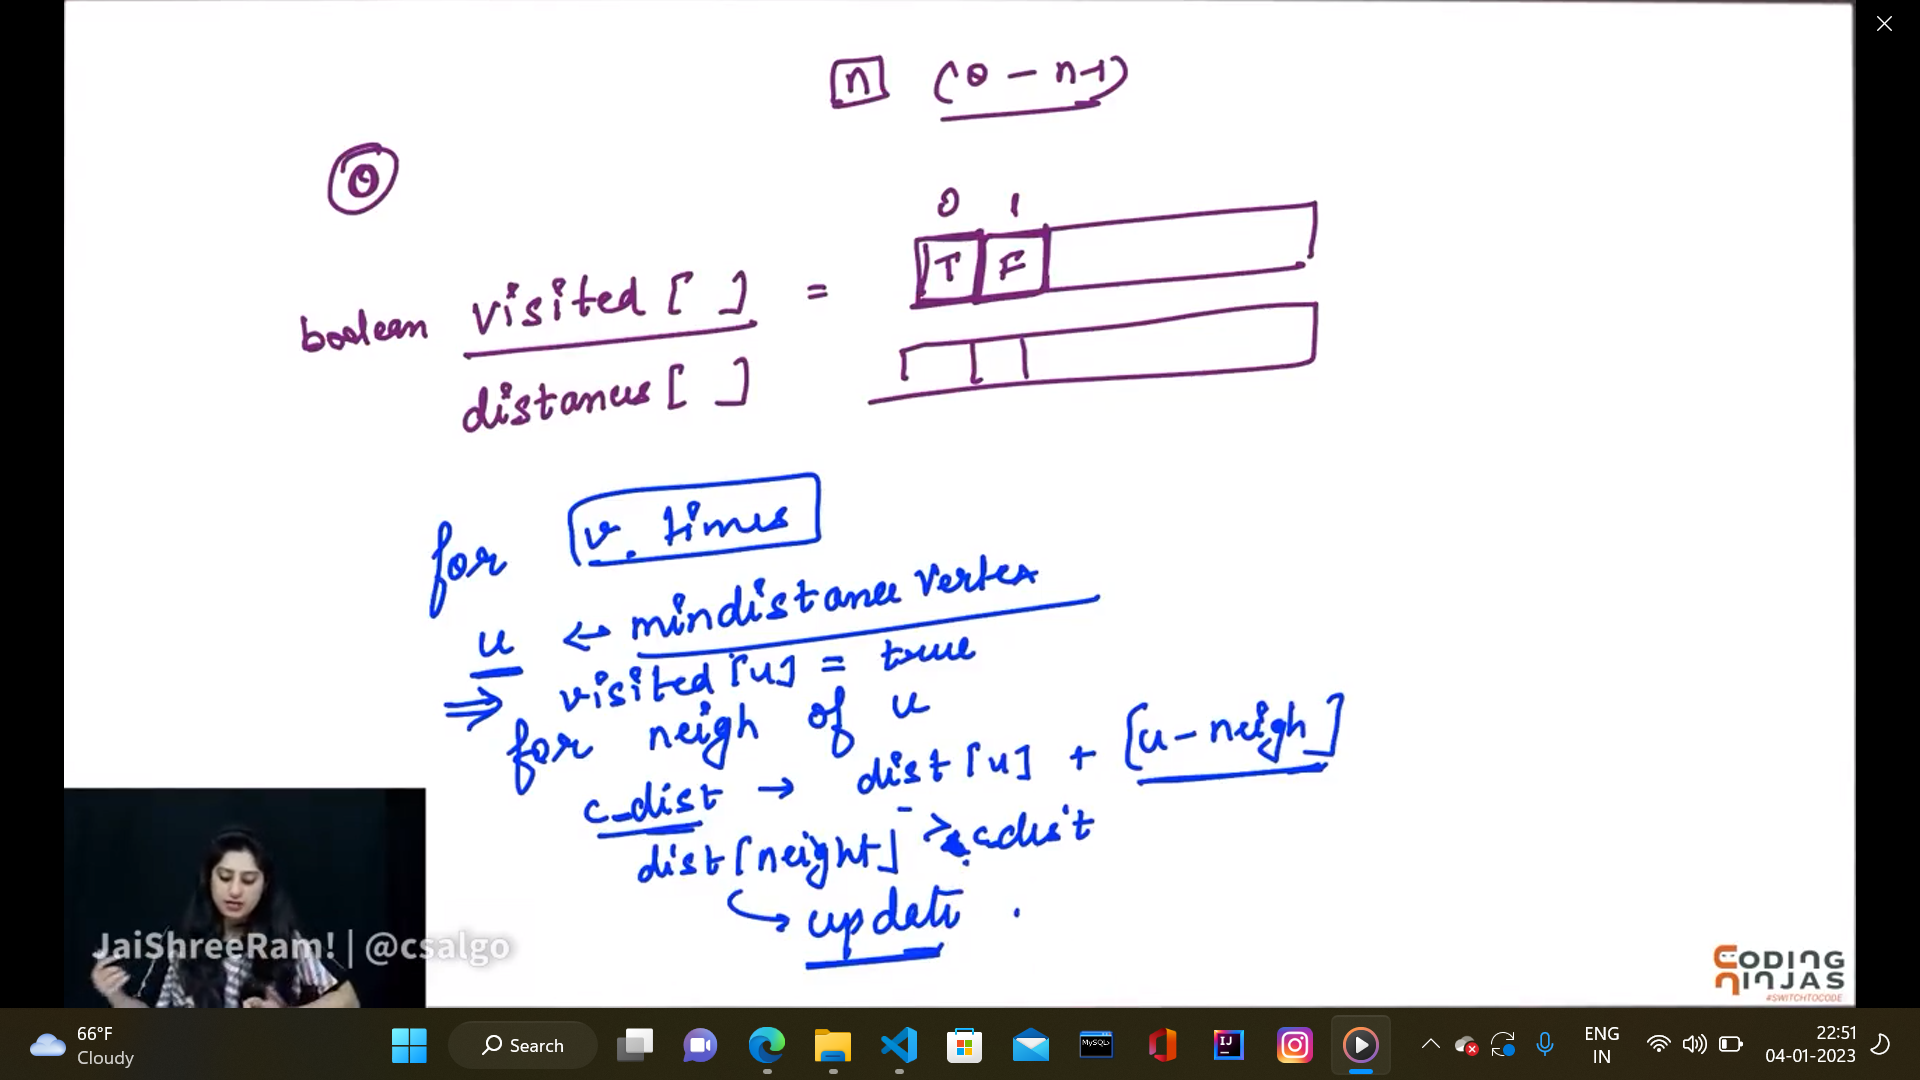 n (0 - n-1)
0
0 1
T F
boolean visited [ ] =
distances [ ]
for v. times
u ← mindistance vertex
⇒ visited [u] = true
for neigh of u
c_dist → dist [u] + [u - neigh]
dist [neight] > c_dist
↪ update .
JaiShreeRam! | @csalgo
CODING
NINJAS
#SWITCHTOCODE
66°F
Cloudy
Search
MySQL
IJ
ENG
IN
22:51
04-01-2023